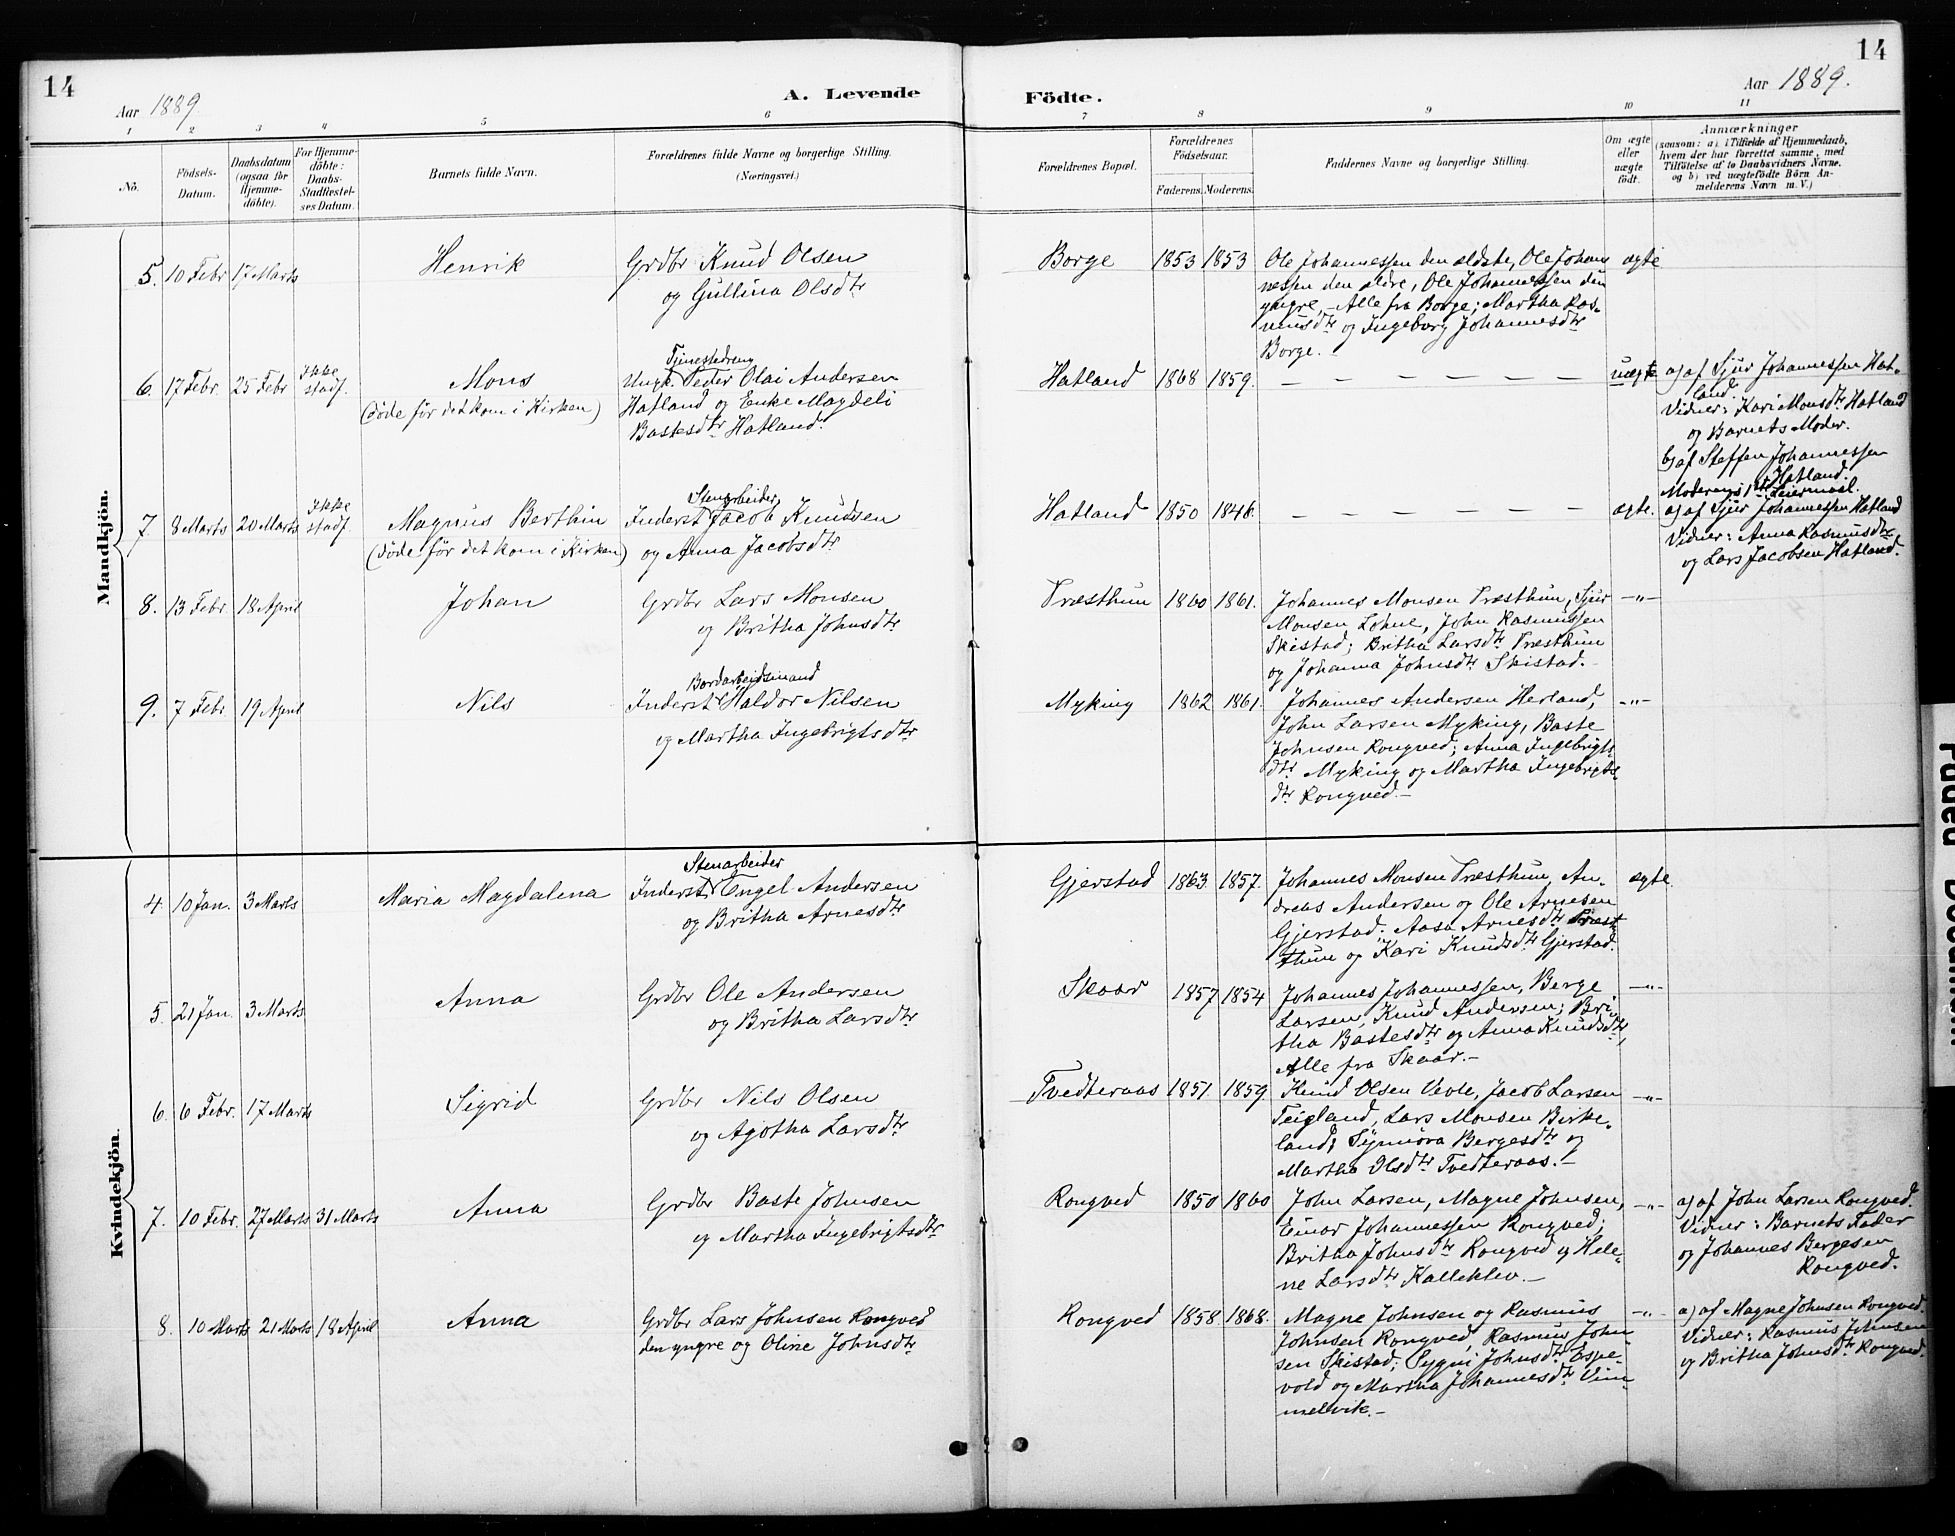 14
Aar 1889.
A. Levende
Födte.
Aar 1889.
14
1 2 3 4 5 6 7 8 9 10 11
No.
Födsels-
Datum.
Daabsdatum
(ogsaa for
Hjemme-
döbte).
For Hjemme-
döbte:
Daabs-
Stadfæstel-
ses Datum.
Barnets fulde Navn.
Forældrenes fulde Navne og borgerlige Stilling.
(Næringsvei.)
Forældrenes Bopæl.
Forældrenes
Födselsaar.
Faderens. Moderens.
Faddernes Navne og borgerlige Stilling.
Om ægte
eller
uægte
födt.
Anmærkninger
(saasom: a) i Tilfælde af Hjemmedaab,
hvem der har forrettet samme, med
Tilföielse af to Daabsvidners Navne.
og b) ved uægtefödte Börn An-
melderens Navn m. V.)
Mandkjön.
5. 10 Febr 17 Marts
Henrik
Grdbr Knud Olsen
og Gullina Olsdtr
Borge 1853 1853
Ole Johannessen den ældste, Ole Johan
nessen den ældre, Ole Johannessen den
yngre, - Alle fra Borge; Martha Ras-
musdtr og Ingeborg Johannesdtr
Borge. -
ægte
6. 17 Febr. 25 Febr Ikke
stadf.
Mons
(döde för det kom i Kirken)
Tjenestedreng
Ungk. Peder Olai Andersen
Hatland og Enke Magdeli
Bastesdtr Hatland.
Hatland 1868 1859.
— — — — — —
uægte
a) af Sjur Johannessen Hat-
land.
Vidner: Kari Monsdtr Hatland
og Barnets Moder.
b) af Steffen Johannessen
Hatland.
Moderens 1ste Leiermaal.
7. 8 Marts 20 Marts Ikke
stadf.
Magnus Berthin
(döde för det kom i Kirken)
Stenarbeider
Inderst Jacob Knudsen
og Anna Jacobsdtr
Hatland 1850 1846.
— — — — — —
ægte.
a) af Sjur Johannessen Hatland
Vidner: Anna Rasmusdtr
og Lars Jacobsen Hatland.
8. 13 Febr. 18 April
Johan
Grdbr Lars Monsen
og Britha Johnsdtr
Træsthun 1860 1861.
Johannes Monsen Træsthun, Sjur
Monsen Lohne, John Rasmussen
Skistad; Britha Larsdtr Træsthun
og Johanna Johnsdtr Skistad. -
-"-
9. 7 Febr. 19 April
Nils
Bordarbeidsmand
Inderst Haldor Nilsen
og Martha Ingebrigtsdtr
Myking 1862 1861.
Johannes Andersen Herland,
John Larsen Myking, Baste
Johnsen Rongved; Anna Ingebrigts-
dtr Myking og Martha Ingebrigts-
dtr Rongved. -
-"-
Kvindekjön.
4. 10 Jan. 3 Marts
Maria Magdalena
Stenarbeider
Inderst Engel Andersen
og Britha Arnesdtr
Gjerstad 1863 1857.
Johannes Monsen Træsthun, An-
dreas Andersen og Ole Arnesen
Gjerstad. Aasa Arnesdtr Træst
thun og Kari Knudsdtr Gjerstad.
ægte.
5. 21 Jan. 3 Marts
Anna
Grdbr Ole Andersen
og Britha Larsdtr
Skaar 1857 1854
Johannes Johannessen, Berge
Larsen, Knud Andersen; Bri-
tha Bastesdtr og Anna Knudsdtr,
Alle fra Skaar. -
-"-
6. 6 Febr. 17 Marts
Sigrid
Grdbr Nils Olsen
og Agotha Larsdtr
Tvedteraas 1851 1859
Knud Olsen Vevle, Jacob Larsen
Teigland, Lars Monsen Birke-
land; Synnöva Bergesdtr og
Martha Olsdtr Tvedteraas. -
-"-
7. 10 Febr. 27 Marts 31 Marts
Anna
Grdbr Baste Johnsen
og Martha Ingebrigtsdtr
Rongved 1850 1860
John Larsen, Magne Johnsen,
Einar Johannessen Rongved;
Britha Johnsdtr Rongved og Hele-
ne Larsdtr Kalleklev. -
-"-
a) af John Larsen Rongved.
Vidner: Barnets Fader
og Johannes Bergesen
Rongved.
8. 10 Marts 21 Marts 18 April
Anna
Grdbr Lars Johnsen Rongved
den yngre og Oline Johnsdtr
Rongved 1858 1868.
Magne Johnsen og Rasmus
Johnsen Rongved, Rasmus John-
sen Skistad; Sygni Johnsdtr Espe-
vold og Martha Johannesdtr Vim-
melvik. -
-"-
a) af Magne Johnsen Rongved.
Vidner: Rasmus Johnsen
og Britha Johnsdtr Rongved.